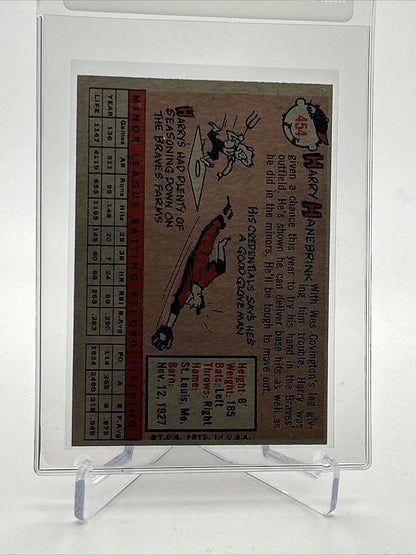 454
HARRY HANEBRINK
With Wes Covington's leg giv-
ing him trouble, Harry was
given a chance this year to try his hand in the Braves'
outfield. He's shown he can deliver base hits as well as
he did in the minors. He'll be tough to move out.
HIS CREDENTIALS SAYS HE'S
A GOOD GLOVE MAN
HARRY'S HAD PLENTY OF
SEASONING DOWN ON
THE BRAVES' FARMS
Height: 6'
Weight: 185
Bats: Left
Throws: Right
Home:
St. Louis, Mo.
Born:
Nov. 12, 1927
MINOR LEAGUE BATTING RECORD FIELDING
Games AB Runs Hits 2B 3B HR RBI B.Avg PO A E F.Avg
YEAR 136 511 95 148 20 7 24 89 .290 114 263 8 .979
LIFE 1141 4119 656 1165 145 60 98 568 .283 1624 2460 218 .949
©T.C.G. PRTD. IN U.S.A.